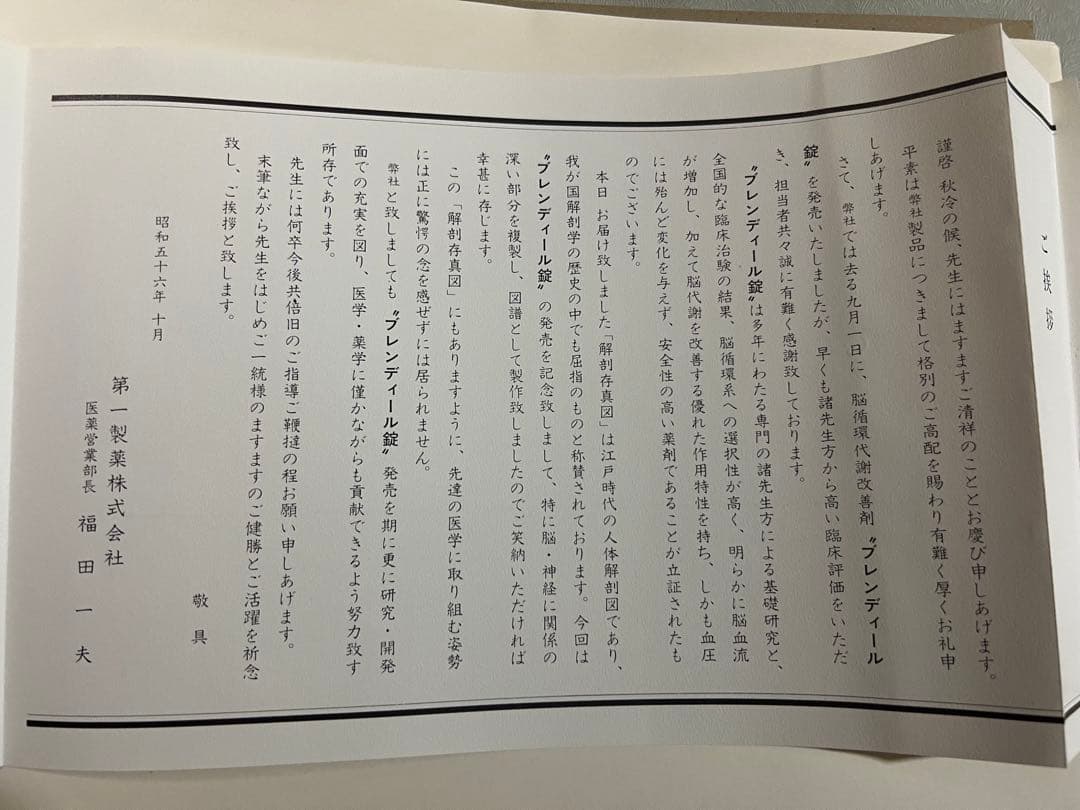 ご挨拶
謹啓 秋冷の候、先生にはますますご清祥のこととお慶び申しあげます。
平素は弊社製品につきまして格別のご高配を賜わり有難く厚くお礼申
しあげます。
さて、弊社では去る九月一日に、脳循環代謝改善剤〝ブレンディール
錠〟を発売いたしましたが、早くも諸先生方から高い臨床評価をいただ
き、担当者共々誠に有難く感謝致しております。
〝ブレンディール錠〟は多年にわたる専門の諸先生方による基礎研究と、
全国的な臨床治験の結果、脳循環系への選択性が高く、明らかに脳血流
が増加し、加えて脳代謝を改善する優れた作用特性を持ち、しかも血圧
には殆んど変化を与えず、安全性の高い薬剤であることが立証されたも
のでございます。
本日 お届け致しました「解剖存真図」は江戸時代の人体解剖図であり、
我が国解剖学の歴史の中でも屈指のものと称賛されております。今回は
〝ブレンディール錠〟の発売を記念致しまして、特に脳・神経に関係の
深い部分を複製し、図譜として製作致しましたのでご笑納いただければ
幸甚に存じます。
この「解剖存真図」にもありますように、先達の医学に取り組む姿勢
には正に驚愕の念を感ぜずには居られません。
弊社と致しましても〝ブレンディール錠〟発売を期に更に研究・開発
面での充実を図り、医学・薬学に僅かながらも貢献できるよう努力致す
所存であります。
先生には何卒今後共倍旧のご指導ご鞭撻の程お願い申しあげます。
末筆ながら先生をはじめご一統様のますますのご健勝とご活躍を祈念
致し、ご挨拶と致します。
敬具
昭和五十六年十月
第一製薬株式会社
医薬営業部長 福田一夫